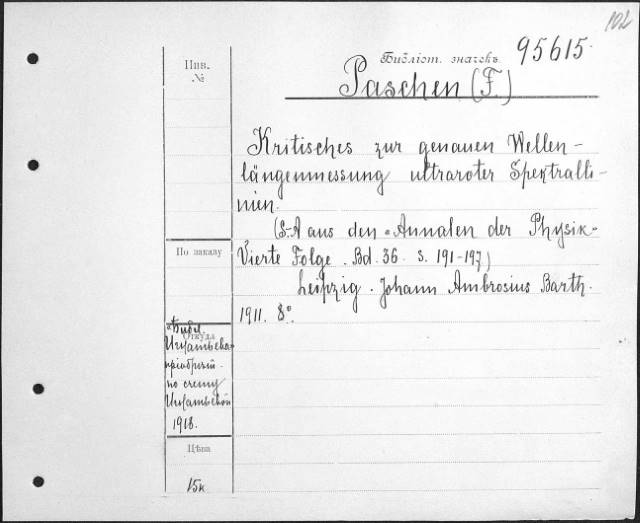 102
Библіот. значекъ 95615.
Инв.
№
Paschen (F.)
Kritisches zur genauen Wellen-
längenmessung ultraroter Spektralli-
nien.
(S-A aus den "Annalen der Physik"
По заказу
Vierte Folge. Bd. 36. S. 191-197)
Leipzig. Johann Ambrosius Barth.
1911. 8°.
"Библ.
Откуда
Игнатьева"
пріобрѣт.
по счету
Игнатьевой
1918.
Цѣна
15к